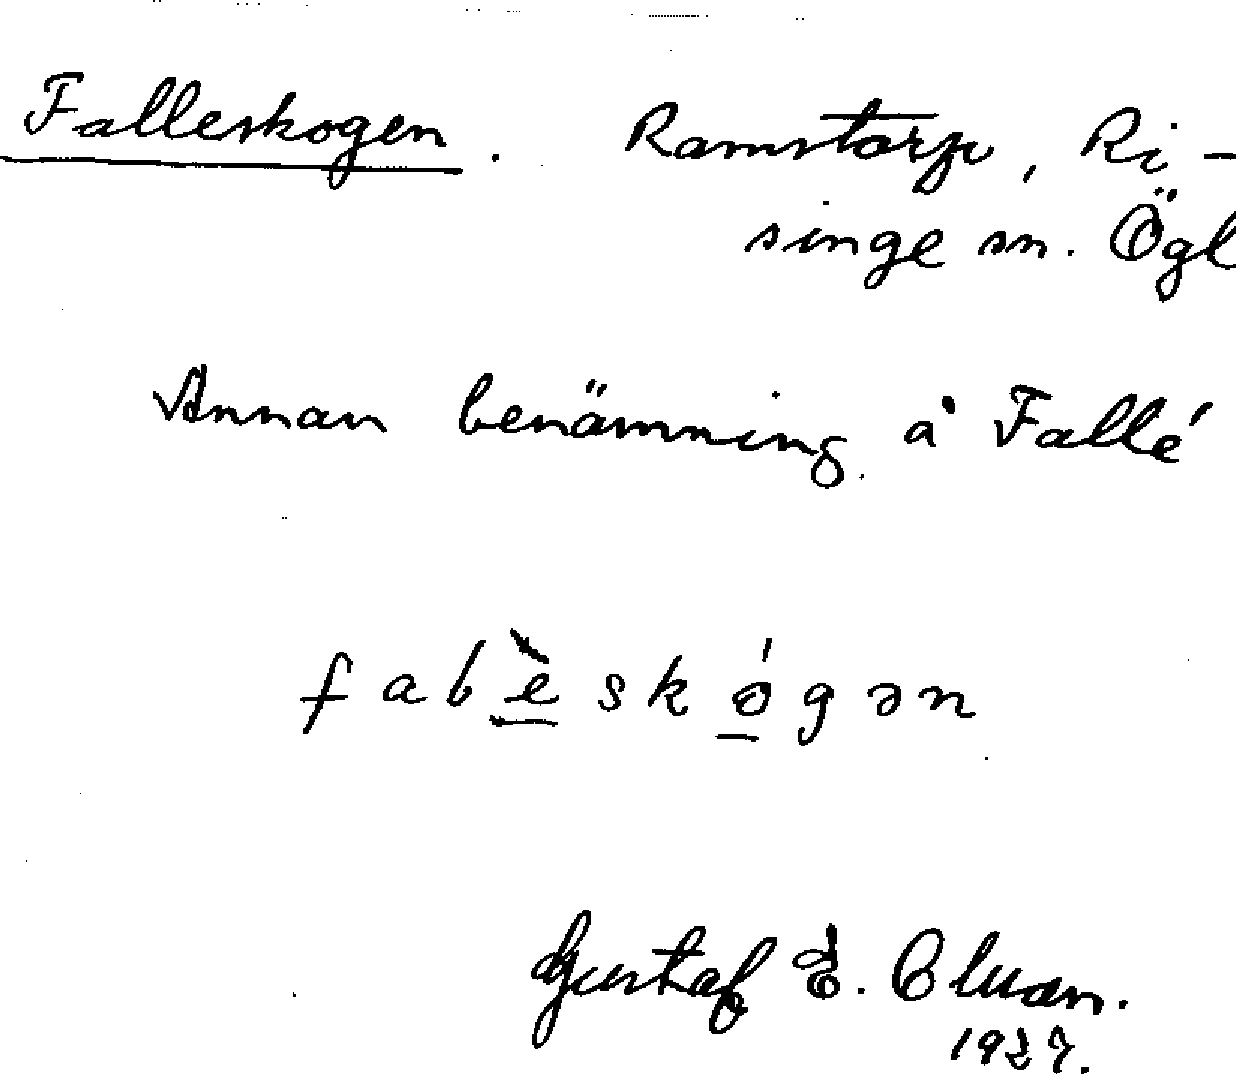 Falleskogen. Ramstorp, Ri-
singe sn. Ögl
Annan benämning å Fallé
fabèskógən
Gustaf E.
1927.